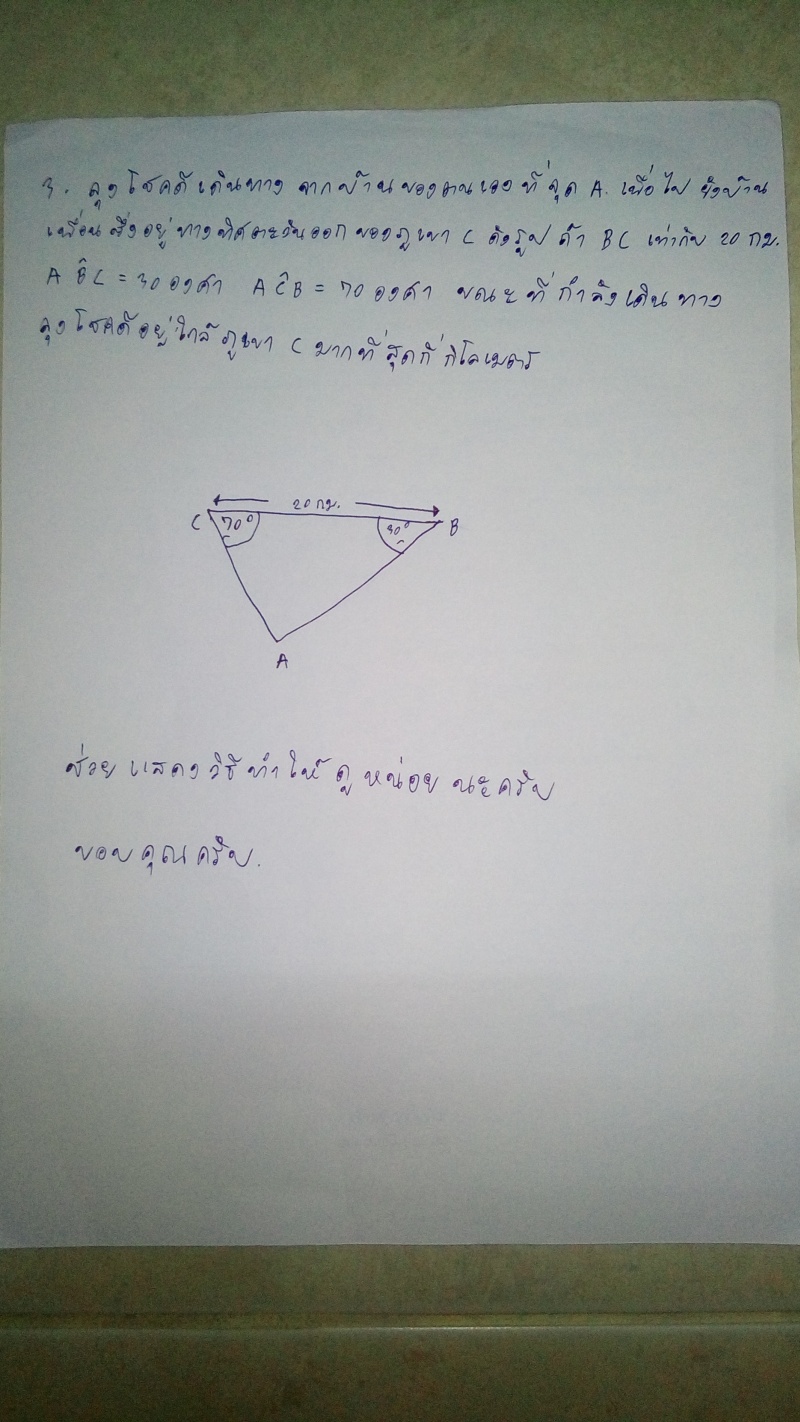 3. ลุงโชคดีเดินทางจากบ้านของตนเองที่จุด A. เพื่อไปยังบ้าน
เพื่อนซึ่งอยู่ทางทิศตะวันออกของภูเขา C ดังรูป ถ้า BC เท่ากับ 20 กม.
A B̂ C = 30 องศา A Ĉ B = 70 องศา ขณะที่กำลังเดินทาง
ลุงโชคดีอยู่ใกล้ภูเขา C มากที่สุดกี่กิโลเมตร
20 กม.
C 70° 30° B
A
ช่วยแสดงวิธีทำให้ดูหน่อยนะครับ
ขอบคุณครับ.